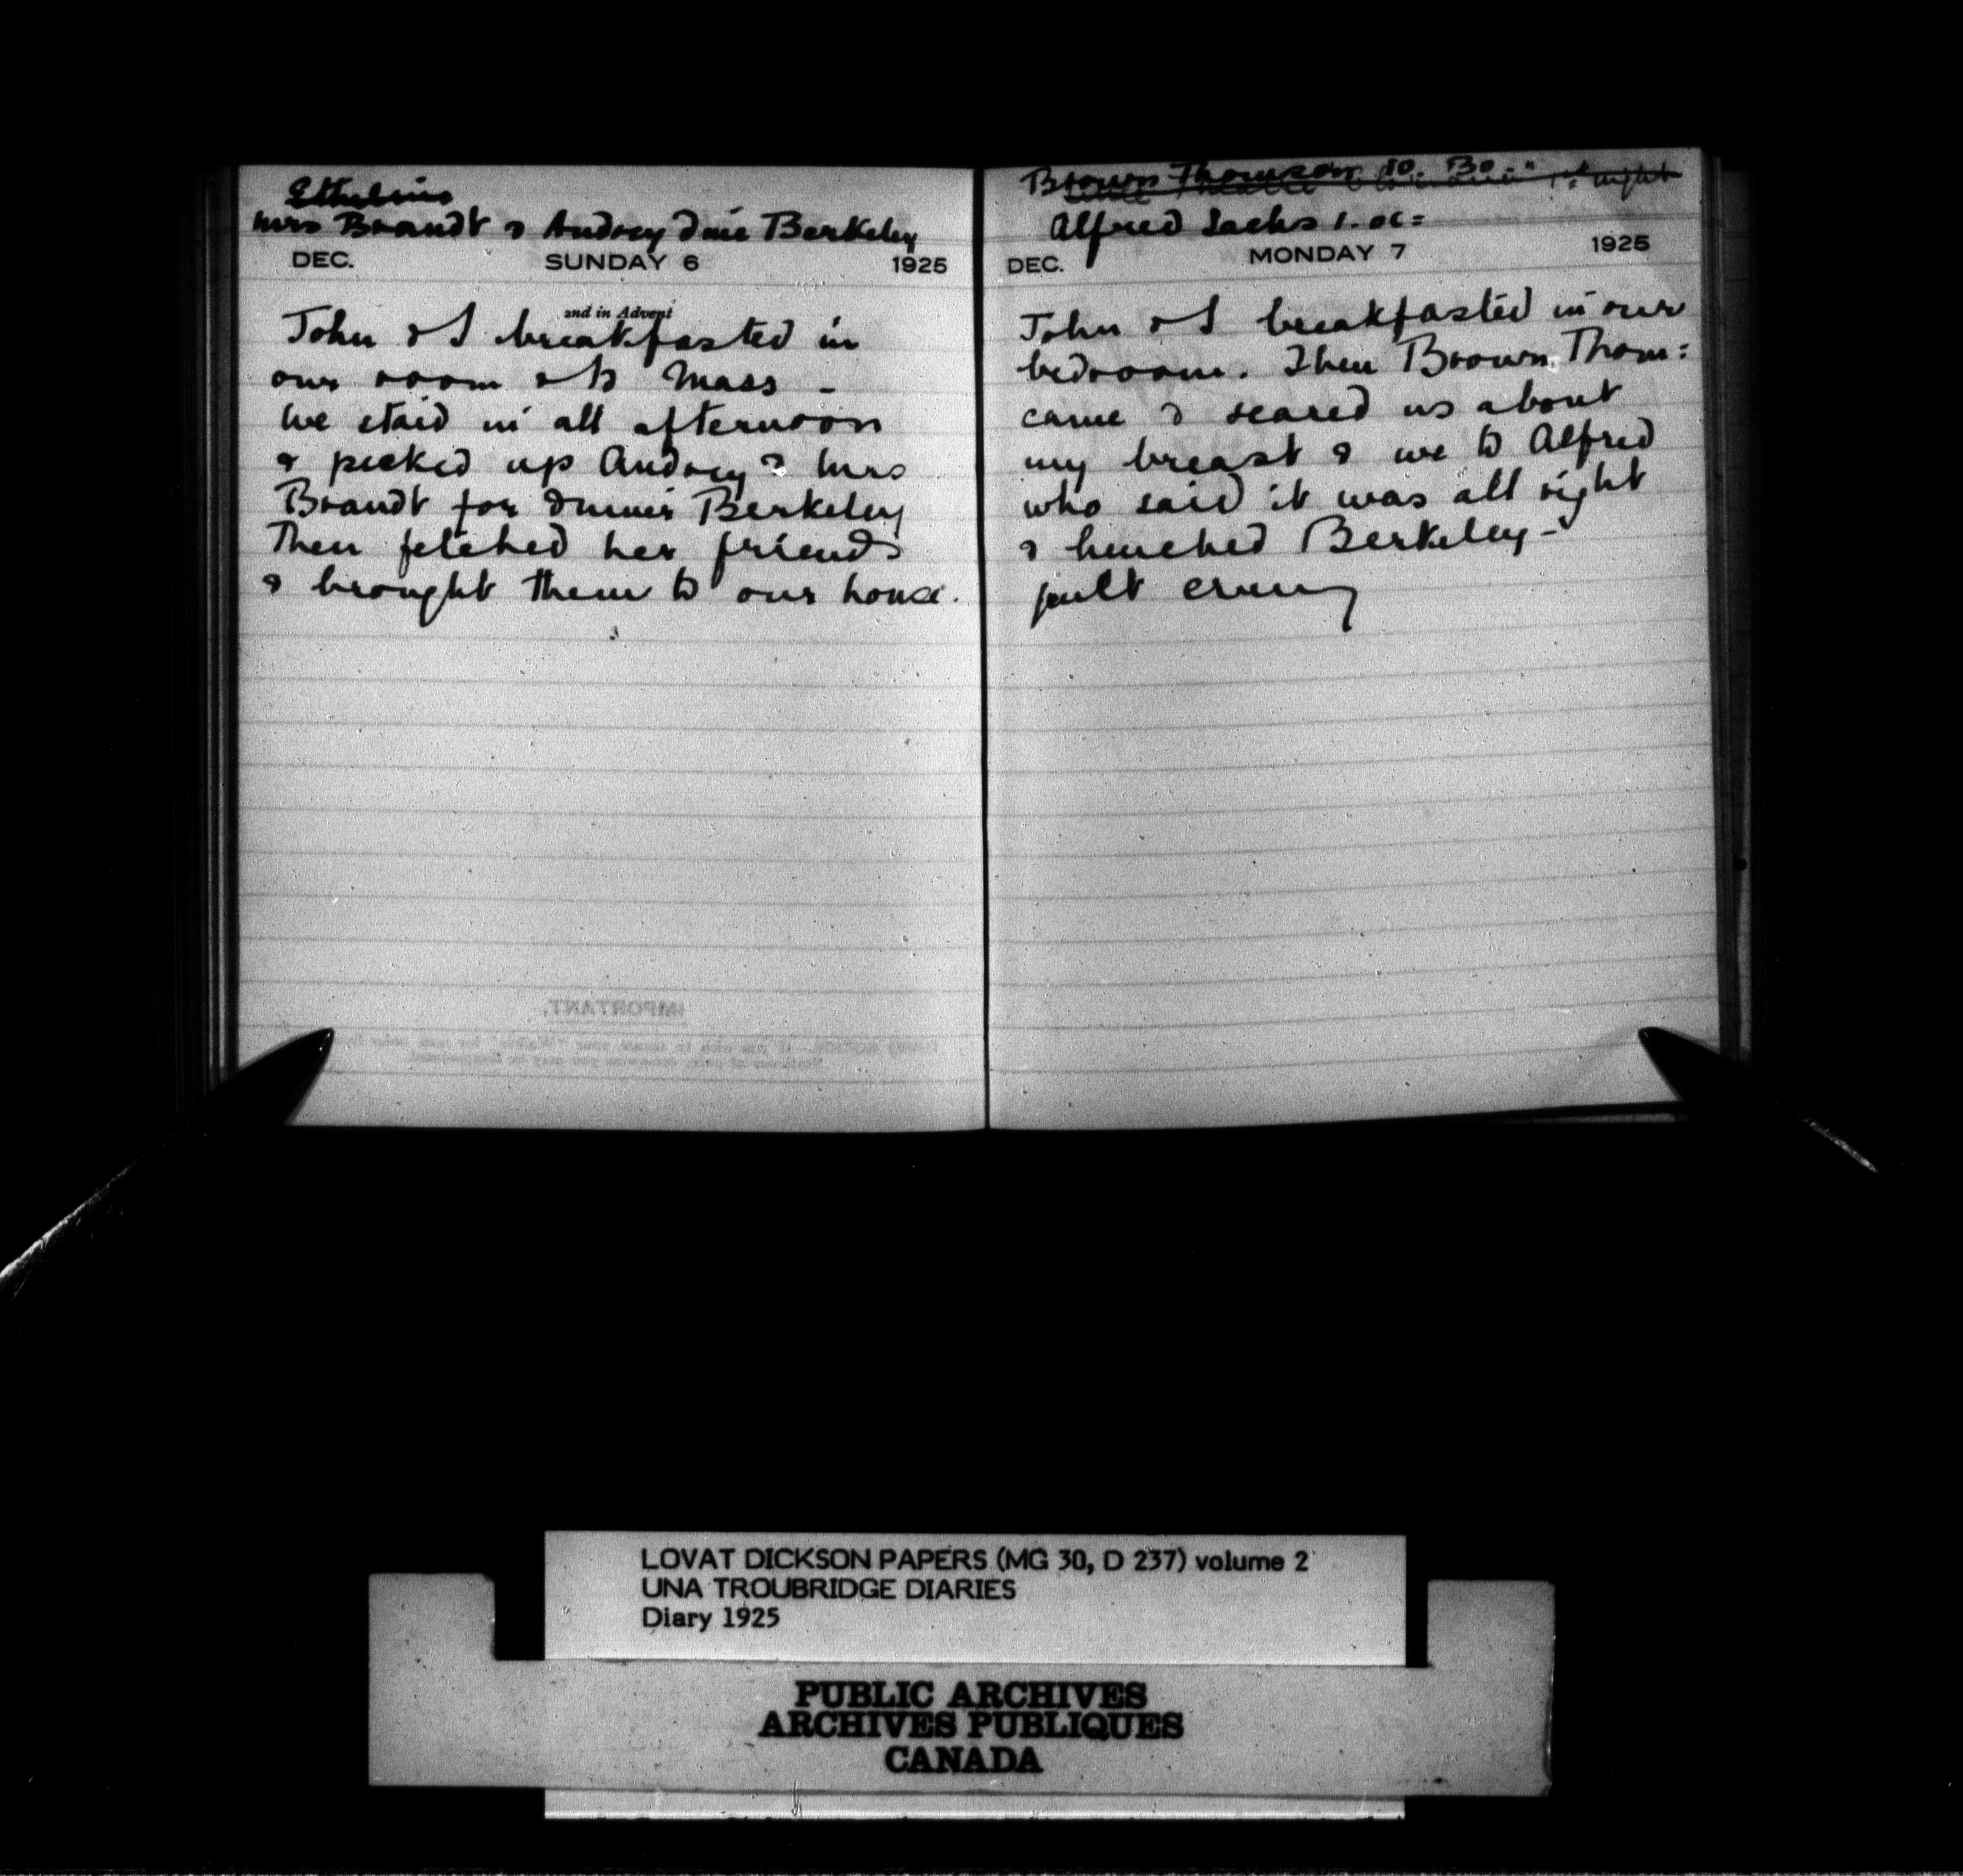 Ethelinis
Mrs Brandt & Audrey dine Berkeley
DEC. SUNDAY 6 1925
2nd in Advent
John & I breakfasted in
our room & to Mass -
We staid in all afternoon
& picked up Audrey & Mrs
Brandt for dinner Berkeley
Then fetched her friends
& brought them to our house.
Brown Thomson 10. 30.
night
Alfred Sachs 1. oc=
DEC. MONDAY 7 1925
John & I breakfasted in our
bedroom. Then Brown Thom:
came & scared us about
my breast & we to Alfred
who said it was all right
& lunched Berkeley -
LOVAT DICKSON PAPERS (MG 30, D 237) volume 2
UNA TROUBRIDGE DIARIES
Diary 1925
PUBLIC ARCHIVES
ARCHIVES PUBLIQUES
CANADA